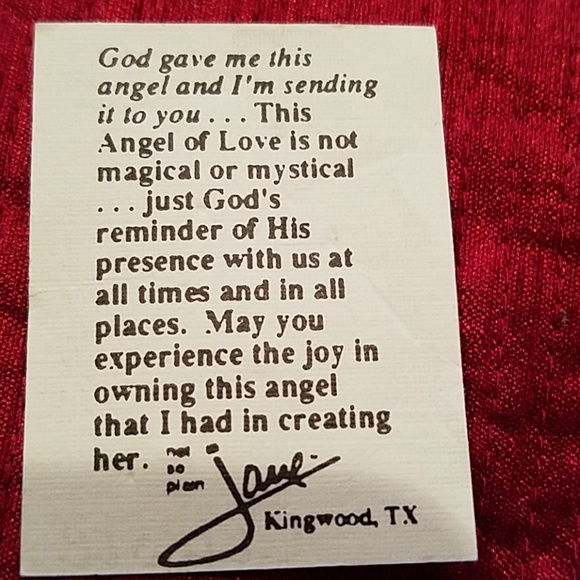 God gave me this
angel and I'm sending
it to you . . . This
Angel of Love is not
magical or mystical
. . . just God's
reminder of His
presence with us at
all times and in all
places. May you
experience the joy in
owning this angel
that I had in creating
her.
not
so
plain
Jane
Kingwood, TX